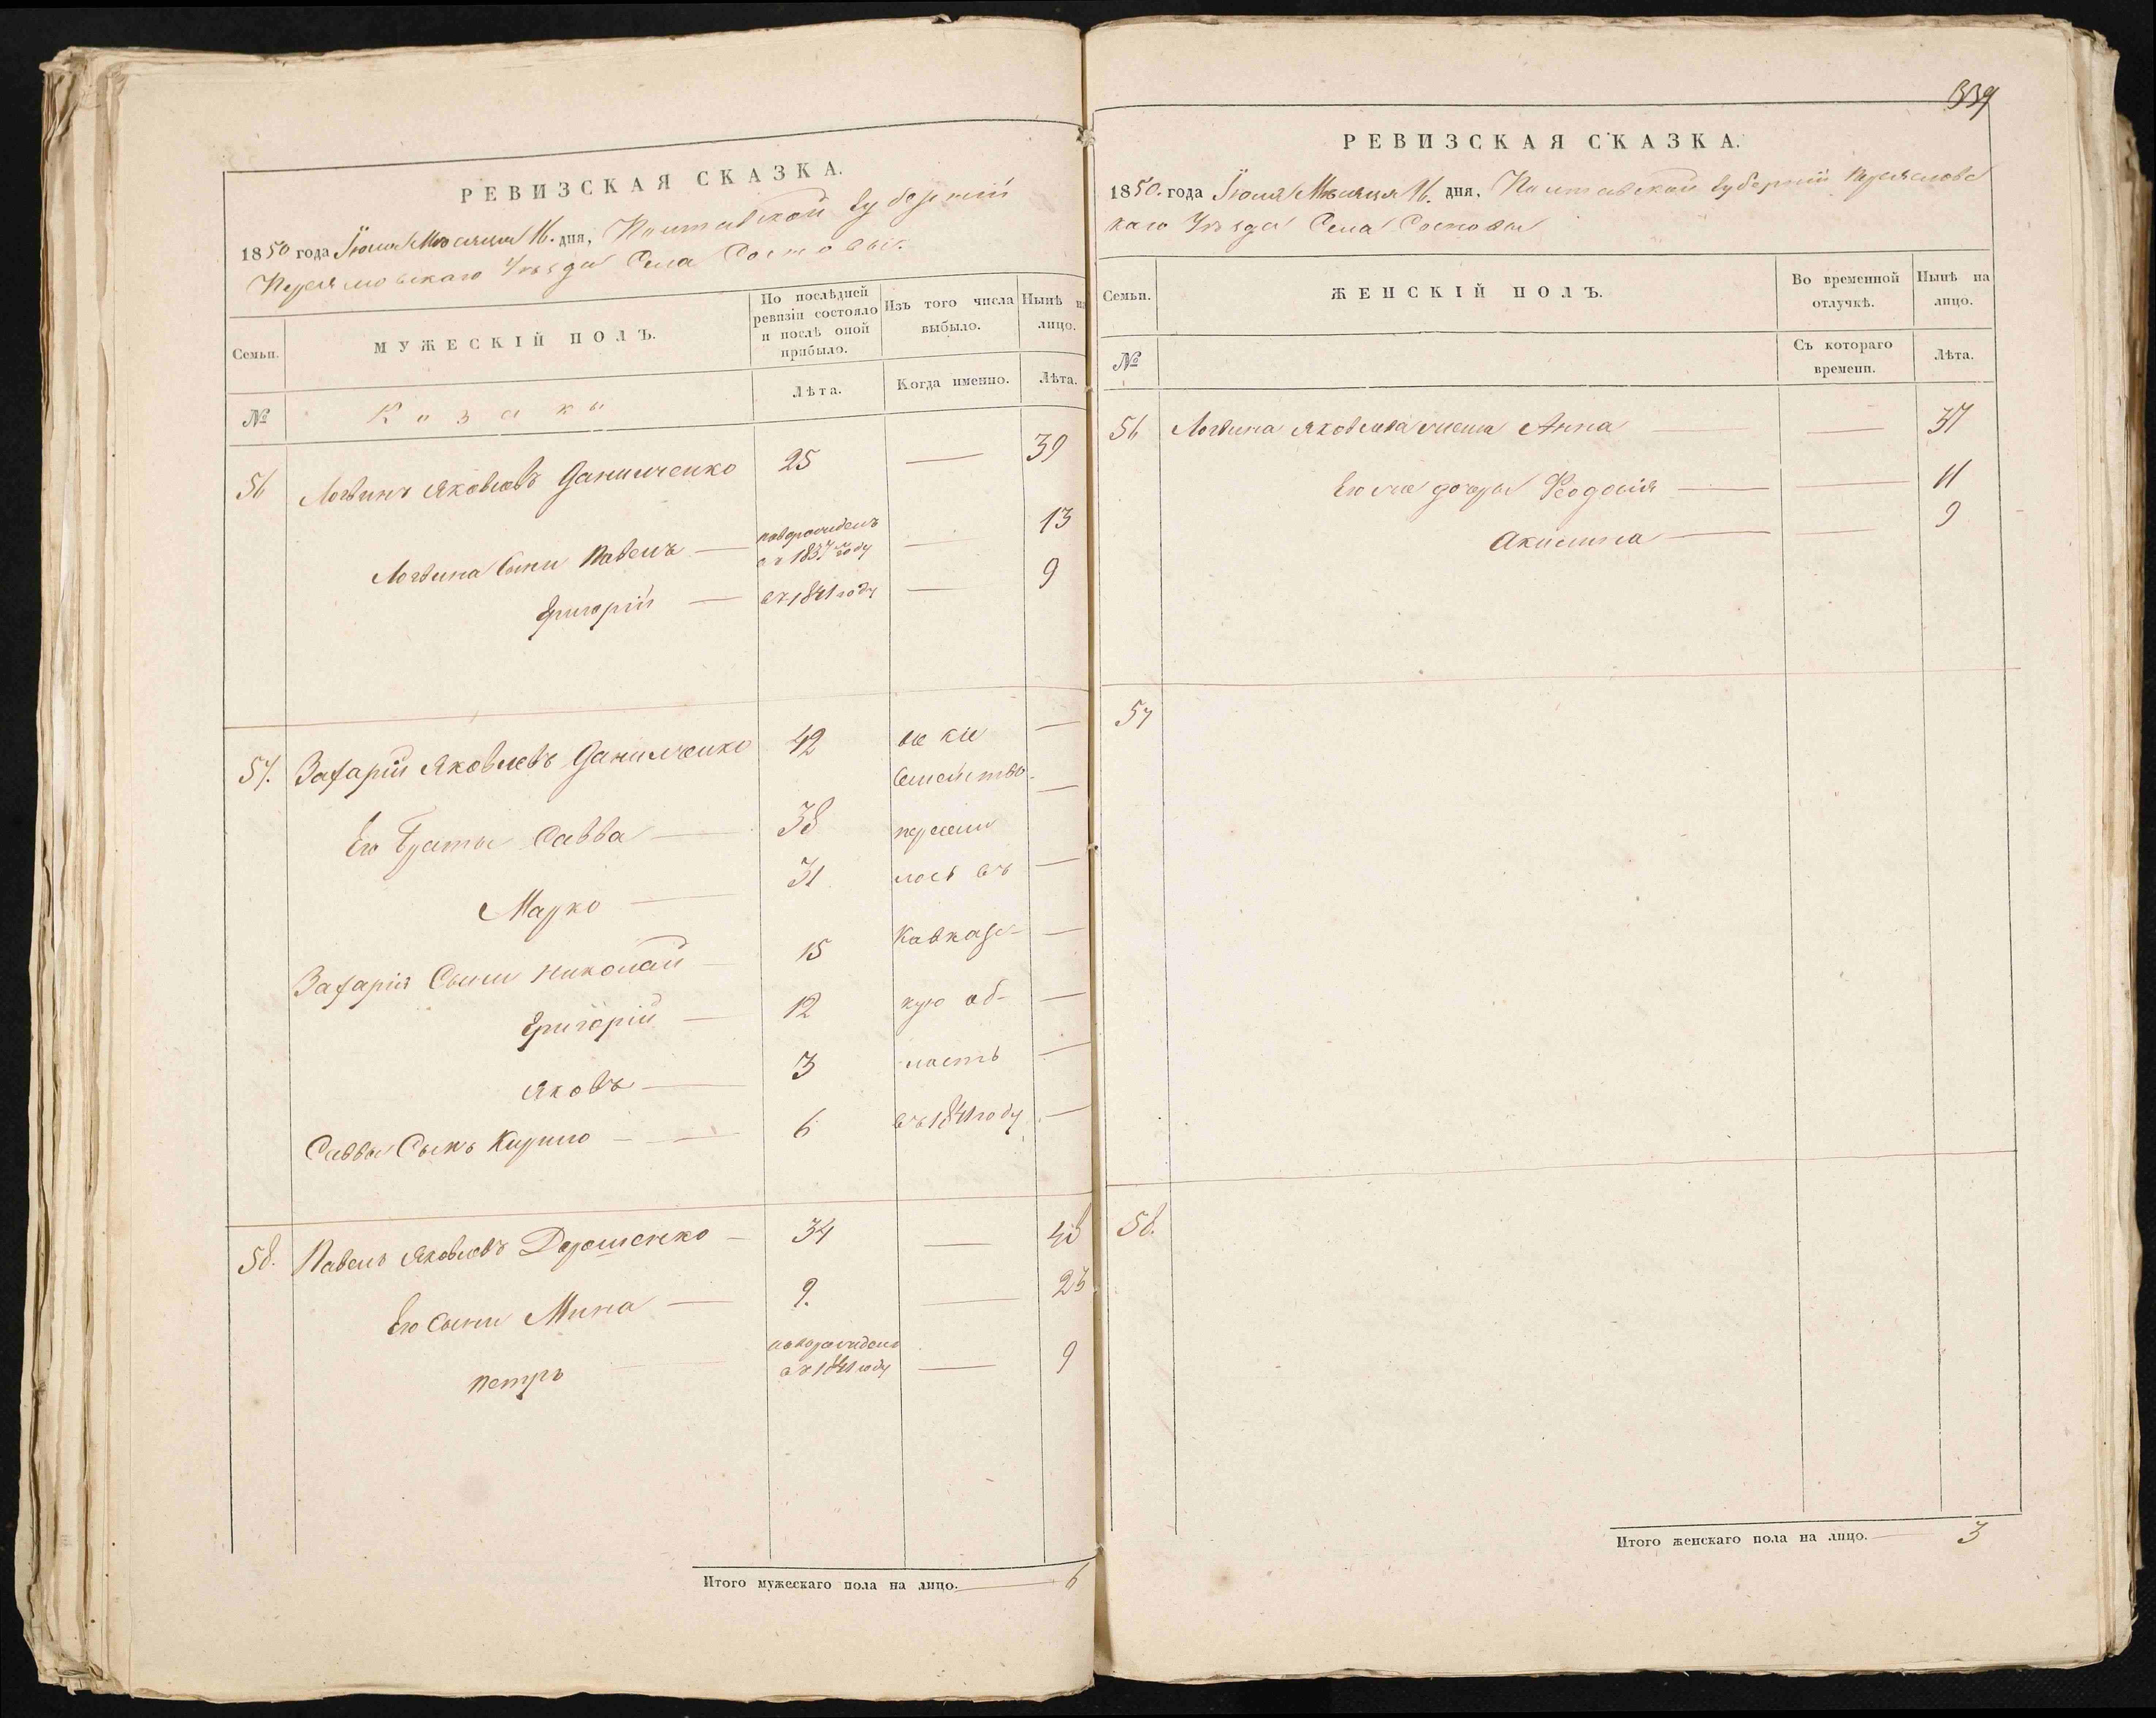 РЕВИЗСКАЯ СКАЗКА.
1850 года Іюля Мѣсяца 16. дня, Полтавской Губерніи
Переяславскаго Уѣзда Села Сосновы.
Семьи.
МУЖЕСКІЙ ПОЛЪ.
По послѣдней ревизіи состояло и послѣ оной прибыло.
Изъ того числа выбыло.
Нынѣ на лицо.
№
Козаки
Лѣта.
Когда именно.
Лѣта.
56 Логвинъ Яковлевъ Данильченко 25 — 39
Логвина Сыни Павелъ — новорожденъ въ 1837 году — 13
Григорій — въ 1841 году — 9
57. Захарій Яковлевъ Данилченко 42 —
Семейство
Его Братья Савва — 38 пересели —
Марко — 31 лось въ —
Захарія Сыни Николай — 15 Кавказс- —
Григорій — 12 кую об- —
Яковъ — 3 ласть —
Саввы Сынъ Кирило — 6 въ 1841 году —
58. Павелъ Яковлевъ Дорошенко — 34 — 48
Его Сыни Мина — 9. — 23
Петръ новорожденъ въ 1841 году — 9
Итого мужескаго пола на лицо. — 6
339
РЕВИЗСКАЯ СКАЗКА.
1850. года Іюля Мѣсяца 16. дня, Полтавской Губерніи Переяславс
каго Уѣзда Села Сосновы
Семьи.
ЖЕНСКІЙ ПОЛЪ.
Во временной отлучкѣ.
Нынѣ на лицо.
№
Съ котораго времени.
Лѣта.
56 Логвина Яковлева жена Анна — — 37
Его же дочери Феодосія — — 11
Акилина — — 9
57
58.
Итого женскаго пола на лицо. — 3